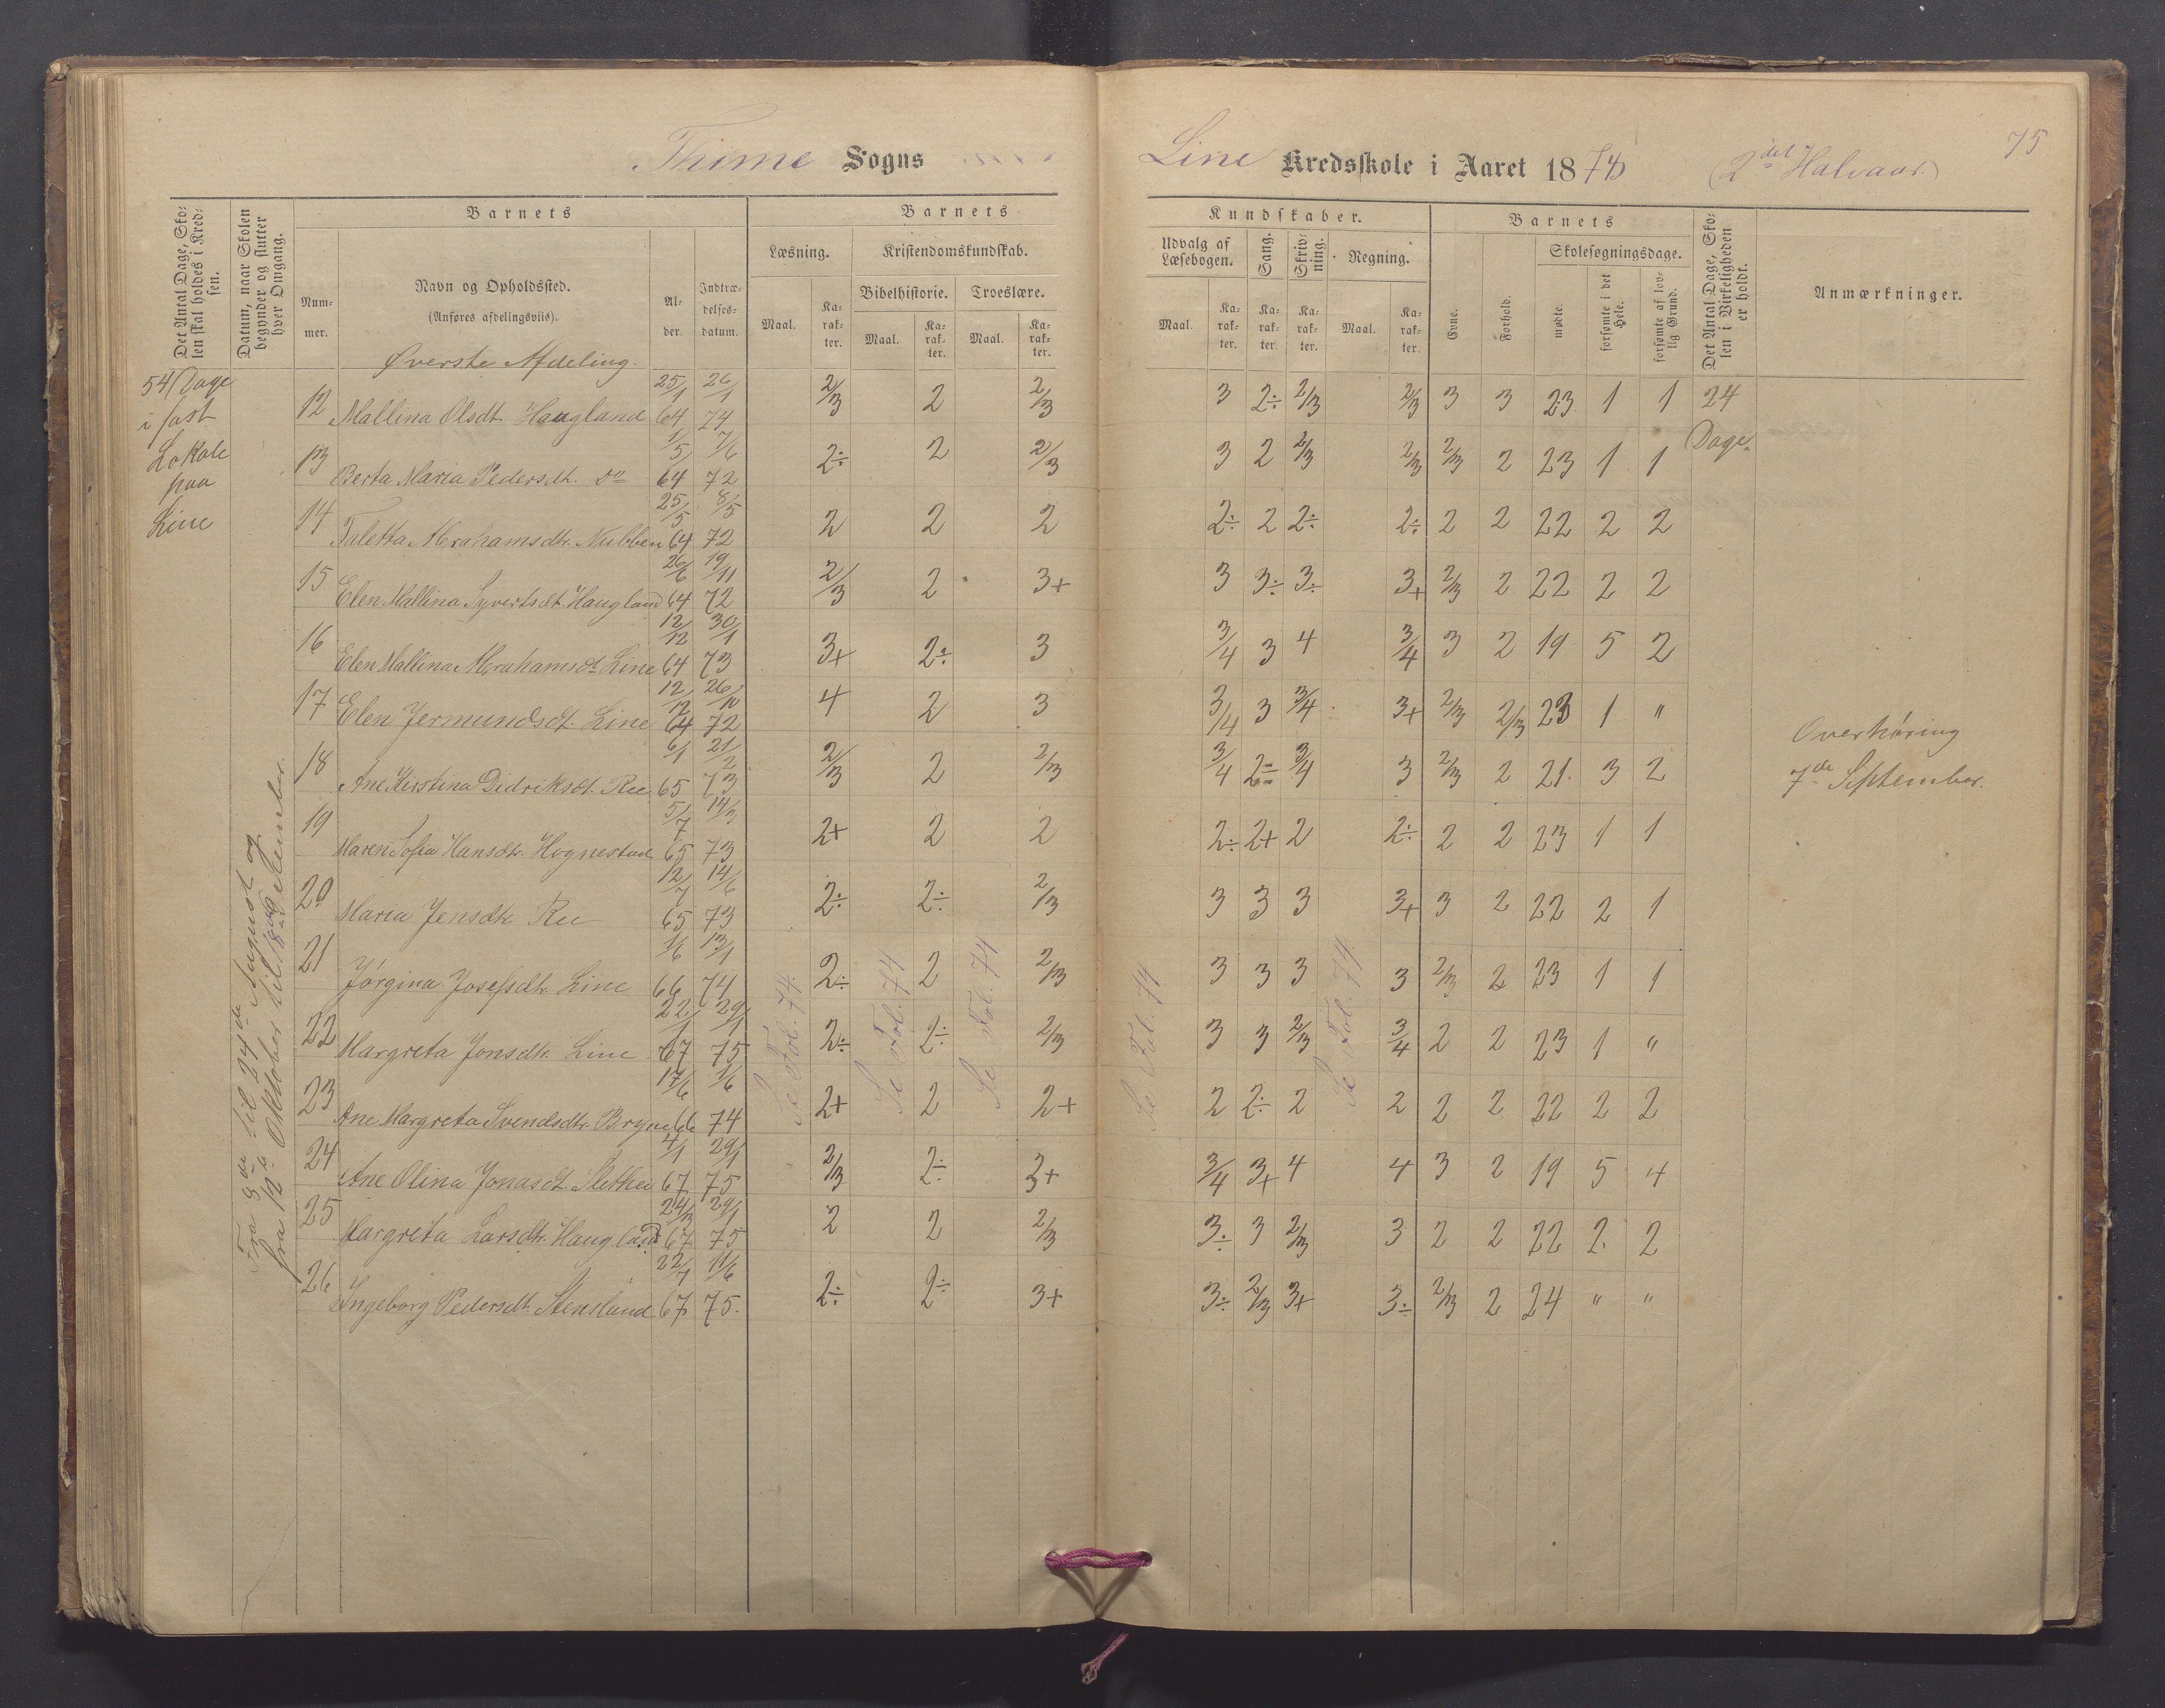 75
Thime Sogns
Line Kredsskole i Aaret 187 (2det Halvaar.)
Det Antal Dage, Sko-
len skal holdes i Kred-
sen.
Datum, naar Skolen
begynder og slutter
hver Omgang.
Barnets
Num-
mer.
Navn og Opholdssted.
(Anføres afdelingsviis).
Øverste Afdeling.
Al-
der.
Indtræ-
delses-
datum.
Barnets
Læsning.
Maal.
Ka-
rak-
ter.
Kristendomskundskab.
Bibelhistorie.
Maal.
Ka-
rak-
ter.
Troeslære.
Maal.
Ka-
rak-
ter.
Kundskaber.
Udvalg af
Læsebogen.
Maal.
Ka-
rak-
ter.
Sang.
Ka-
rak-
ter.
Skriv-
ning.
Ka-
rak-
ter.
Regning.
Maal.
Ka-
rak-
ter.
Barnets
Evne.
Forhold.
Skolesøgningsdage.
mødte.
forsømte i det
Hele.
forsømte af lov-
lig Grund.
Det Antal Dage, Sko-
len i Virkeligheden
er holdt.
Anmærkninger.
54 Dage
i fast
Lokale
paa
Line
Fra 8de til 24de August og
fra 12te Oktober til 18de
12 Mallina Olsdt. Haugland 25/1 64 26/1 74 2/3 2 2/3 3 2÷ 2/3 2/3 3 3 23 1 1 24
Dage
13 Berta Maria Pedersdt. do 1/5 64 7/6 72 2÷ 2 2/3 3 2 2/3 2/3 2/3 2 23 1 1
14 Taletta Abrahamsdtr. Nubben 25/5 64 8/5 72 2 2 2 2÷ 2 2÷ 2÷ 2 2 22 2 2
15 Elen Mallina Syvertsdt. Haugland 26/6 64 19/11 72 2/3 2 3+ 3 3÷ 3÷ 3+ 2/3 2 22 2 2
16 Elen Mallina Abrahamsdt. Line 12/12 64 30/1 73 3+ 2÷ 3 3/4 3 4 3/4 3 2 19 5 2
17 Elen Jermundsdt. Line 12/12 64 26/10 72 4 2 3 3/4 3 3/4 3+ 2/3 2/3 23 1 "
18 Ane Kirstina Didriksdt. Ree 6/1 65 21/2 73 2/3 2 2/3 3/4 2÷ 3/4 3 2/3 2 21 3 2
Overhøring
7de September.
19 Maren Sofia Hansdtr. Hognestad 5/7 65 14/3 73 2+ 2 2 2÷ 2+ 2 2÷ 2 2 23 1 1
20 Maria Jensdtr Ree 12/7 65 14/6 73 2÷ 2÷ 2/3 3 3 3 3+ 3 2 22 2 1
21 Jørgina Josefsdtr. Line 1/6 66 13/1 74 2÷ 2 2/3 3 3 3 3 2/3 2 23 1 1
22 Margreta Jonsdtr. Line 22/1 67 29/1 75 2÷ 2÷ 2/3 3 3 2/3 3/4 2 2 23 1 "
23 Ane Margreta Svendsdtr. Bryne 17/6 66 1/6 74 2+ 2 2+ 2 2÷ 2 2 2 2 22 2 2
24 Ane Olina Jonasdt. 4/1 67 29/1 75 2/3 2÷ 3+ 3/4 3+ 4 4 3 2 19 5 4
25 Margreta Larsdtr. Haugland 24/3 67 29/1 75 2 2 2/3 3÷ 3 2/3 3 2 2 22 2 2
26 Ingeborg Pedersdt. Stensland 22/7 67 11/6 75. 2÷ 2÷ 3+ 3÷ 2/3 3+ 3÷ 2/3 2 24 " "
Se Fol. 74.
Se Fol. 74
Se Fol. 74
Se Fol. 74
Se Fol. 74.